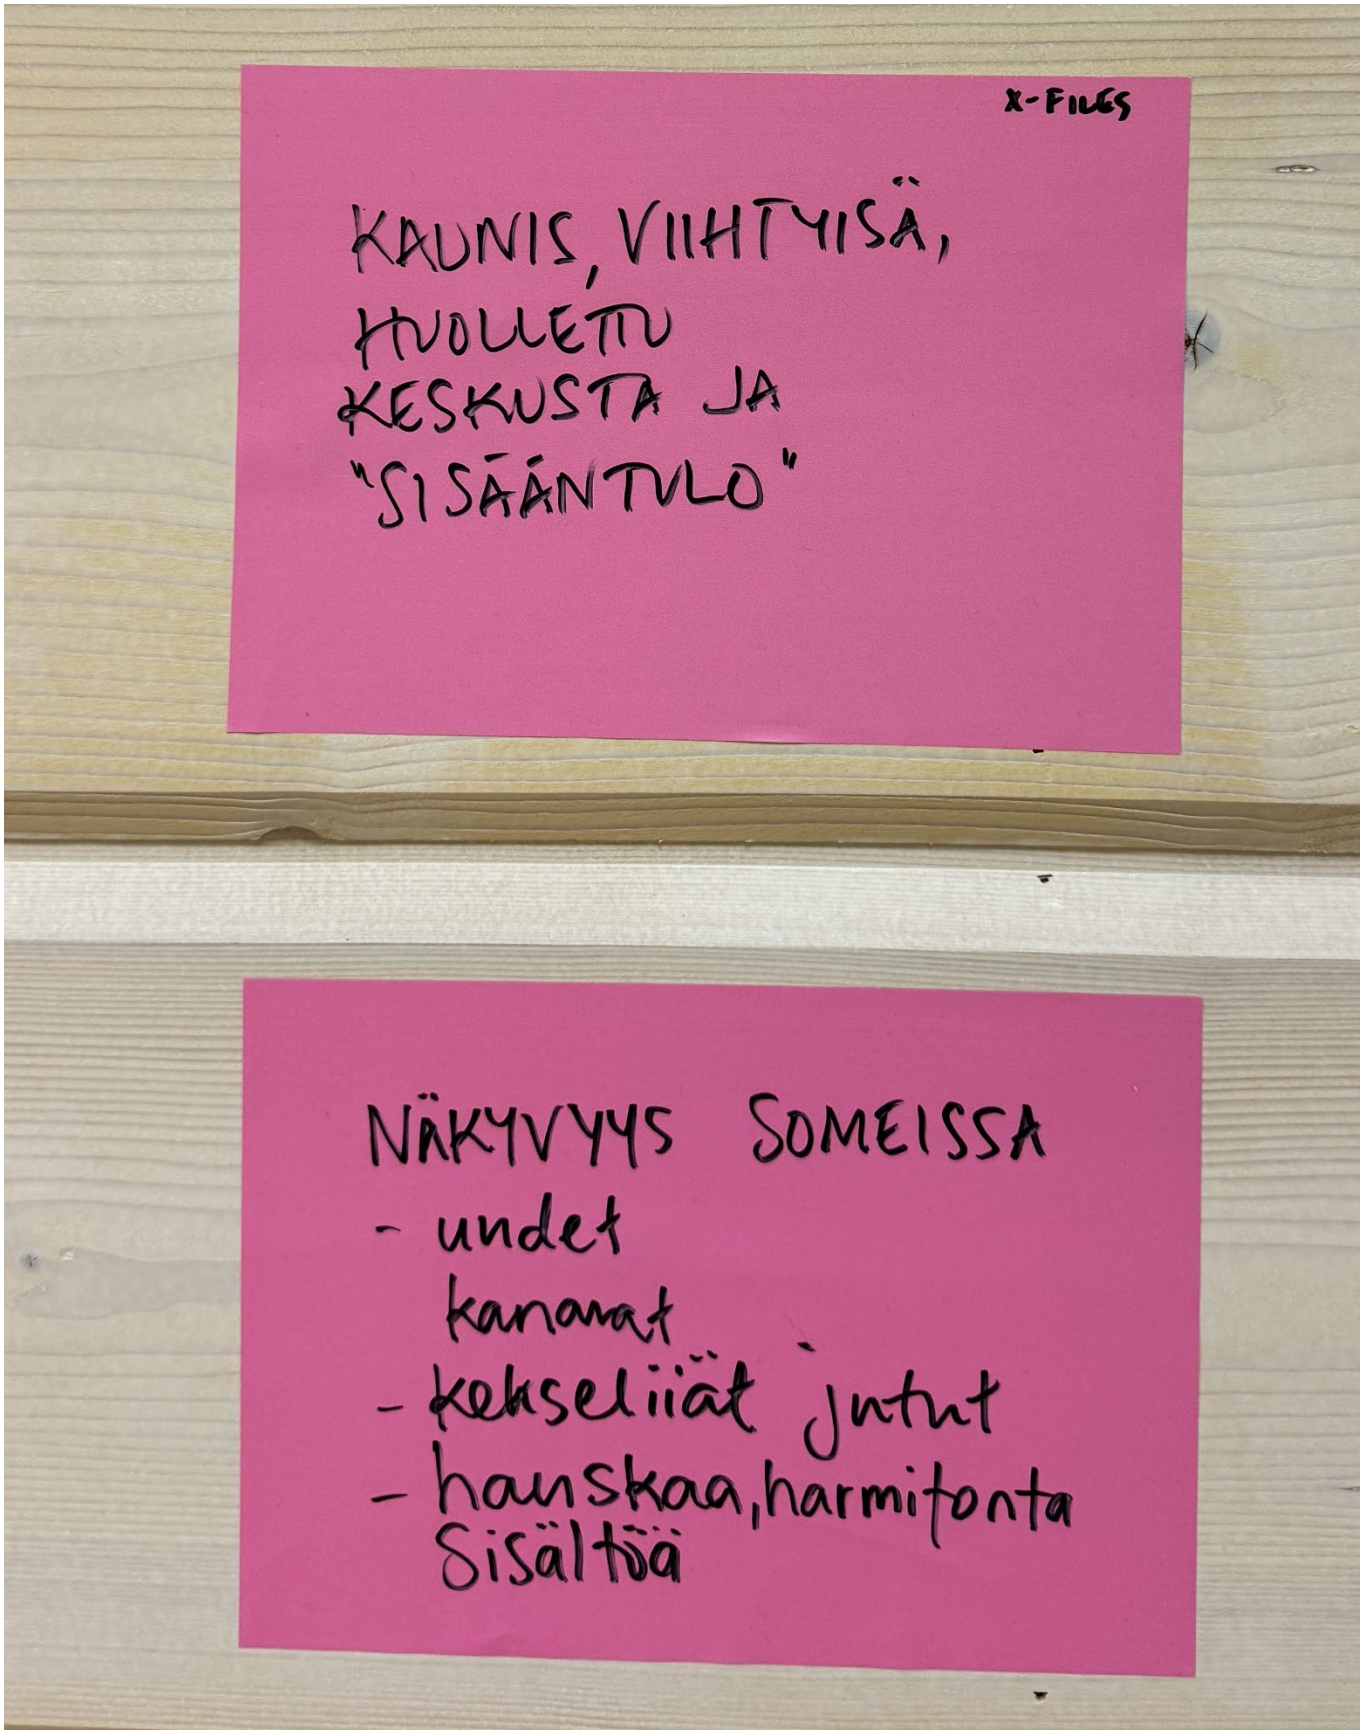 X-FILES
KAUNIS, VIIHTYISÄ,
HUOLLETTU
KESKUSTA JA
"SISÄÄNTULO"
NÄKYVYYS SOMEISSA
- uudet
kanavat
- kekseliäät jutut
- hauskaa, harmitonta
sisältöä